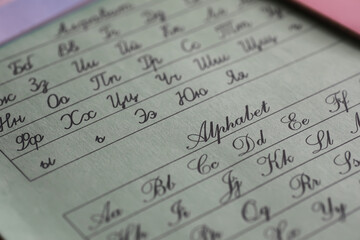 Алфавит
Бб Вв Гг Дд
Зз Ии Йй Кк Лл
Нн Оо Пп Рр Сс
Фф Хх Цц Чч Шш Щщ
ы ь Ээ Юю Яя
Alphabet
Aa Bb Cc Dd Ee Ff
Hh Ii Jj Kk Ll
Oo Pp Qq Rr Ss
Vv Ww Xx Yy